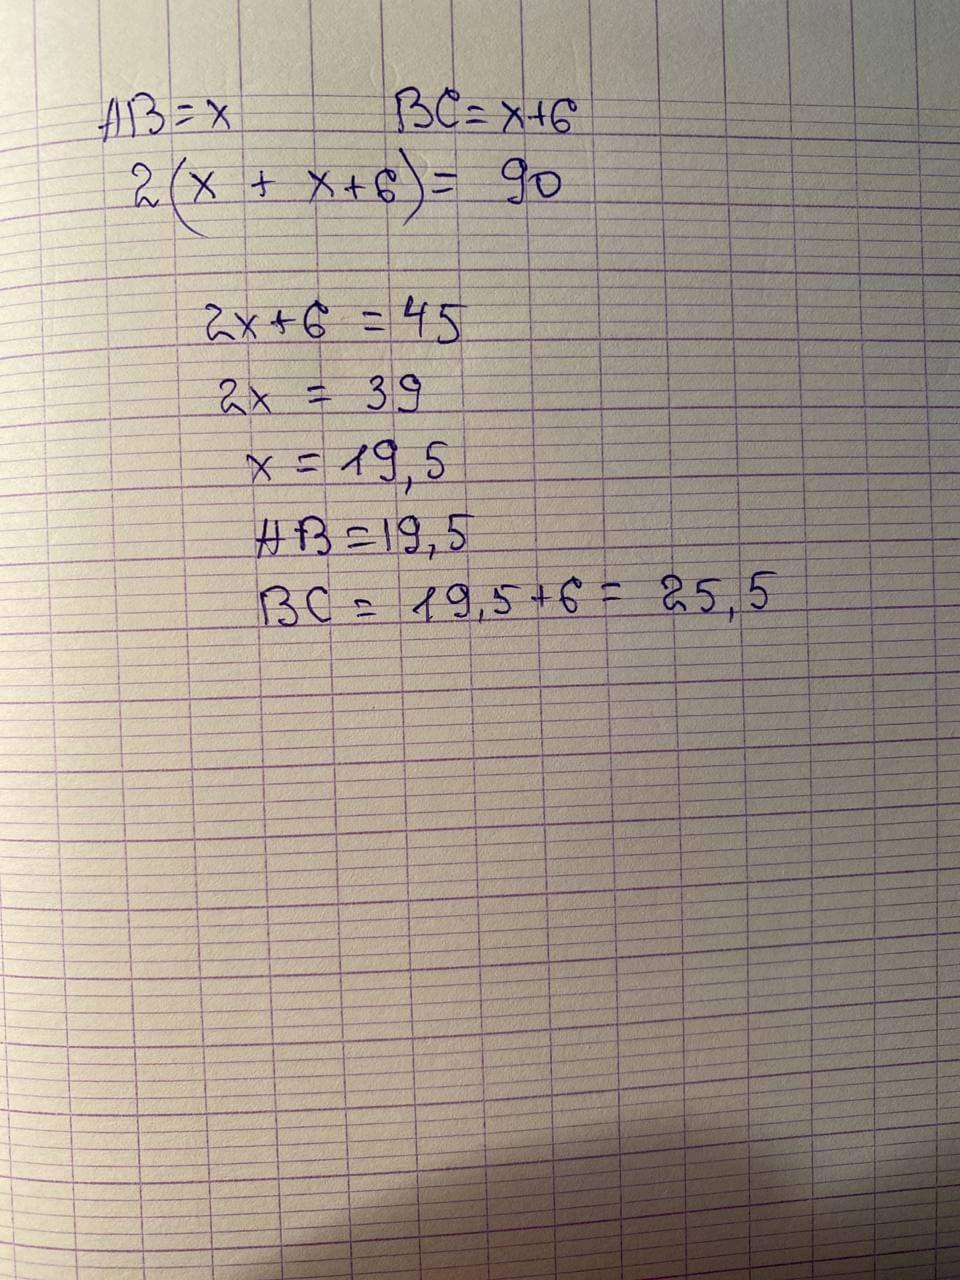 AB = x BC = x+6
2(x + x+6) = 90
2x+6 = 45
2x = 39
x = 19,5
AB = 19,5
BC = 19,5+6 = 25,5